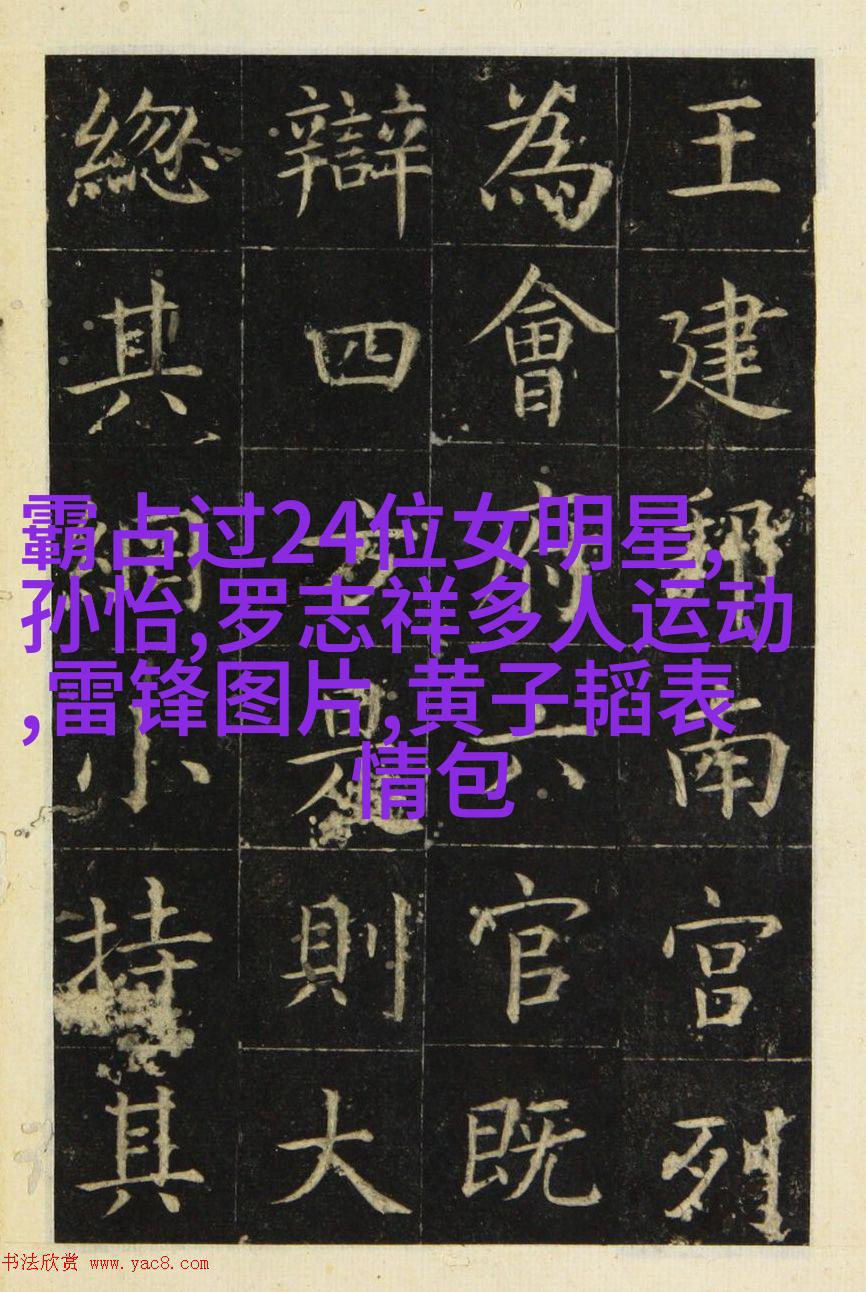 王建邦南宮列
為會府六官既
辯四方是則大
緫其綱小持其
霸占过24位女明星,
孙怡,罗志祥多人运动
,雷锋图片,黄子韬表
情包
书法欣赏 www.yac8.com